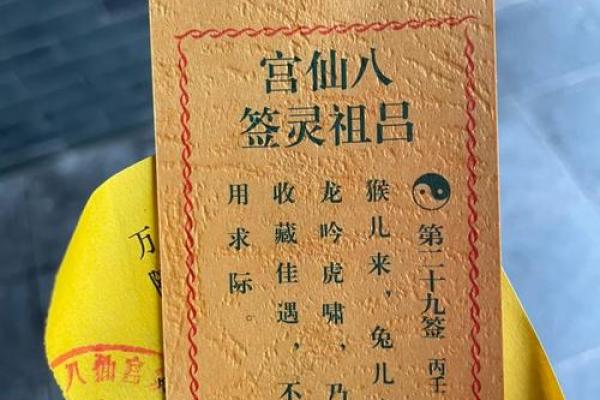 八仙宫
吕祖灵签
第二十九签 丙壬
猴儿来，兔儿
龙吟虎啸，乃
收藏佳遇，不
用求际。
万
八仙宫